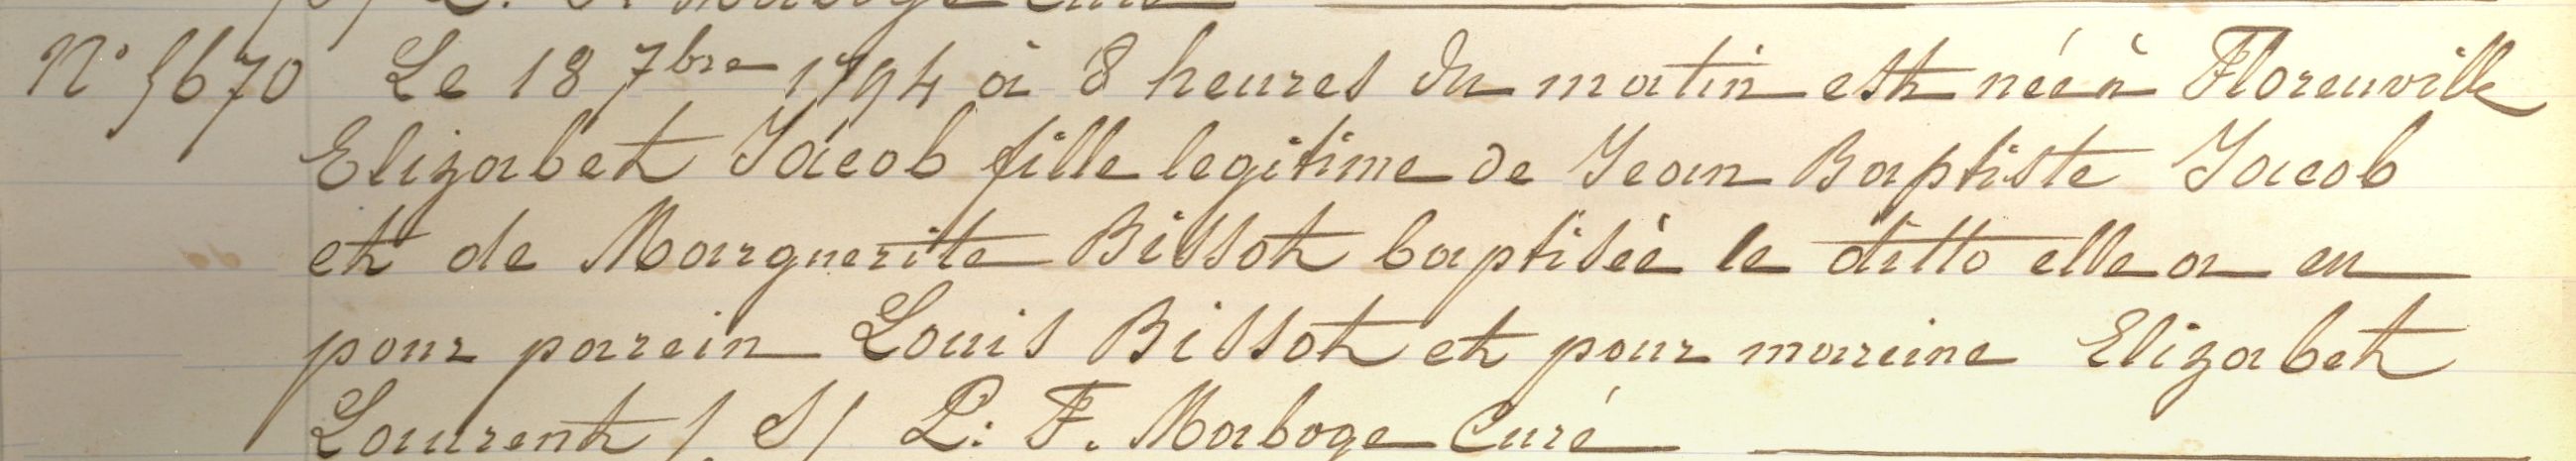 N° 5670 Le 18 7bre 1794 à 8 heures du matin est née à Florenville
Elizabet Jacob fille legitime de Jean Baptiste Jacob
et de Marguerite Bissot baptisée le ditto elle a eu
pour parein Louis Bissot et pour mareine Elizabet
Laurent /S/ L: F. Maboge Curé